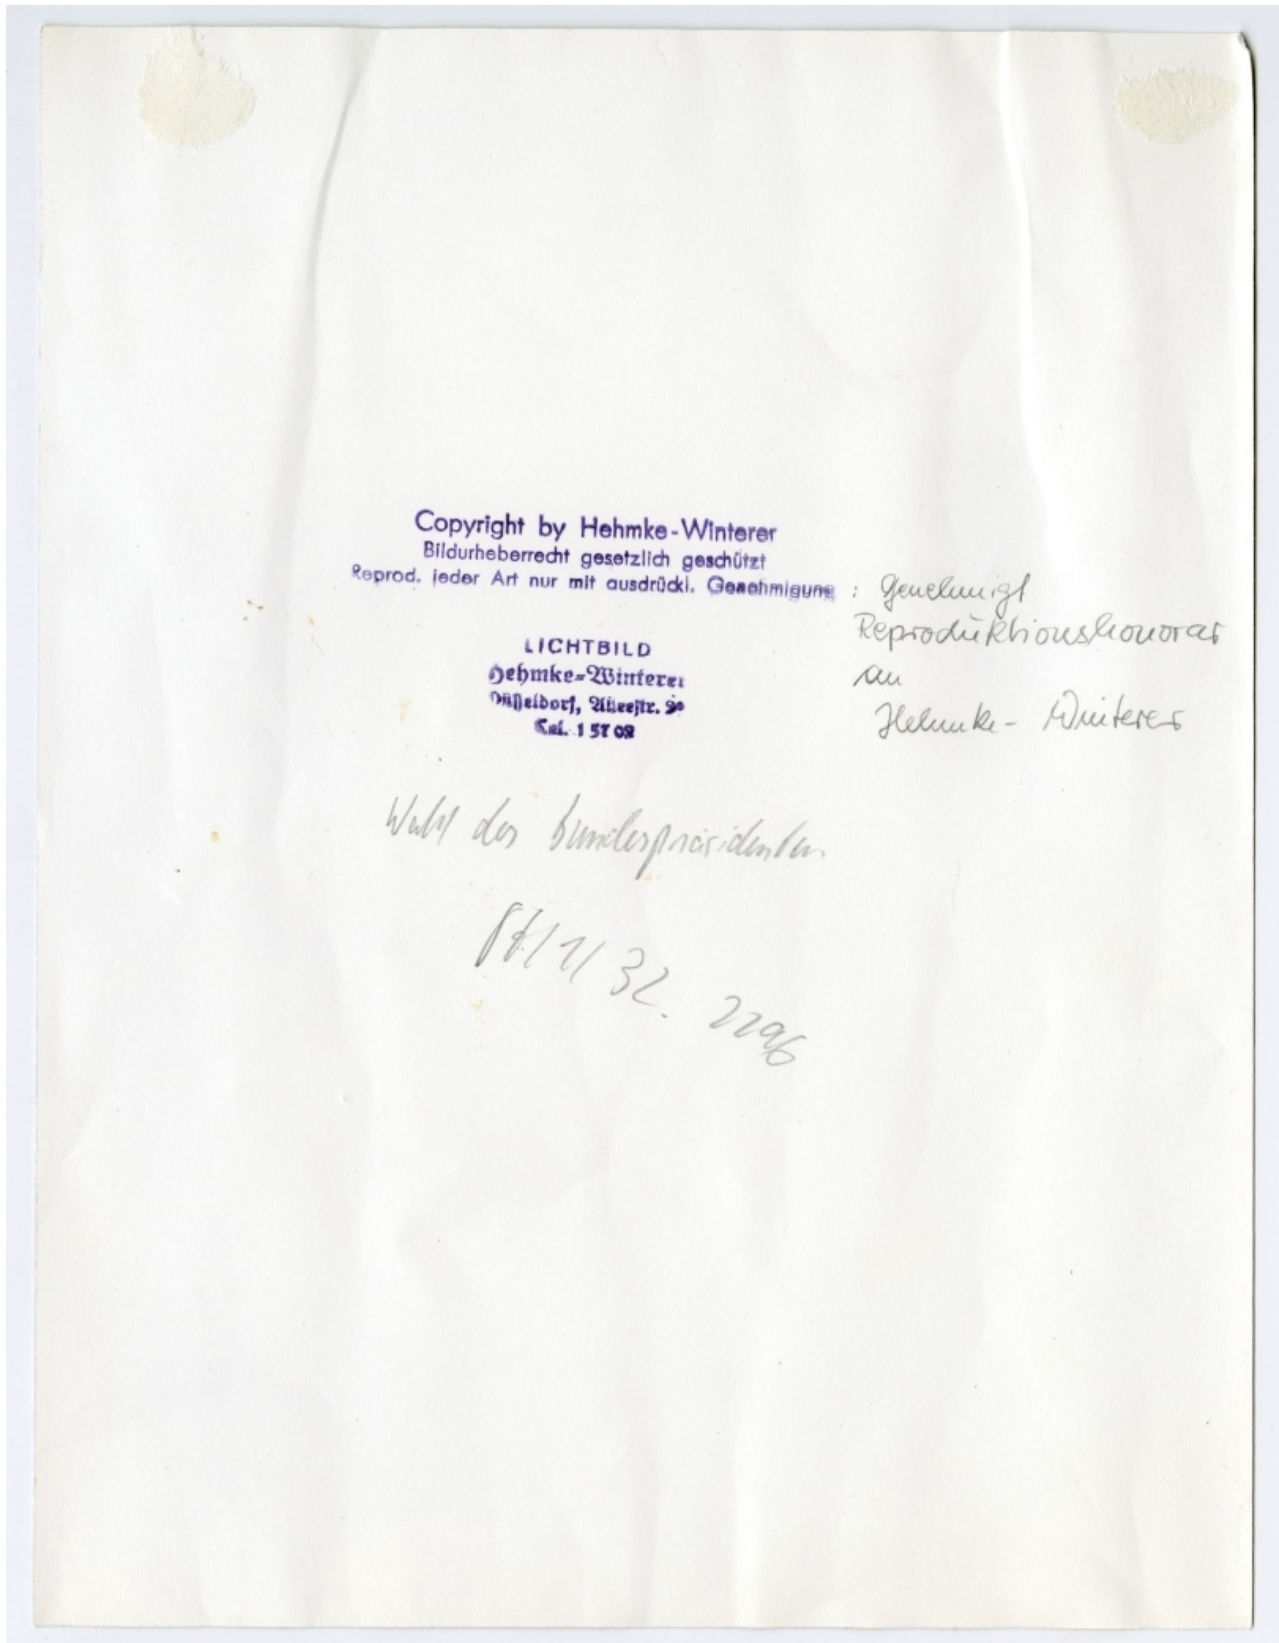 Copyright by Hehmke-Winterer
Bildurheberrecht gesetzlich geschützt
Reprod. jeder Art nur mit ausdrückl. Genehmigung : Genehmigt
Reproduktionshonorar
an
Hehmke-Winterer
LICHTBILD
Hehmke=Winterer
Düsseldorf, Alleestr.
Tel. 1 57 02
Wahl des Bundespräsidenten
/1/32. 2296